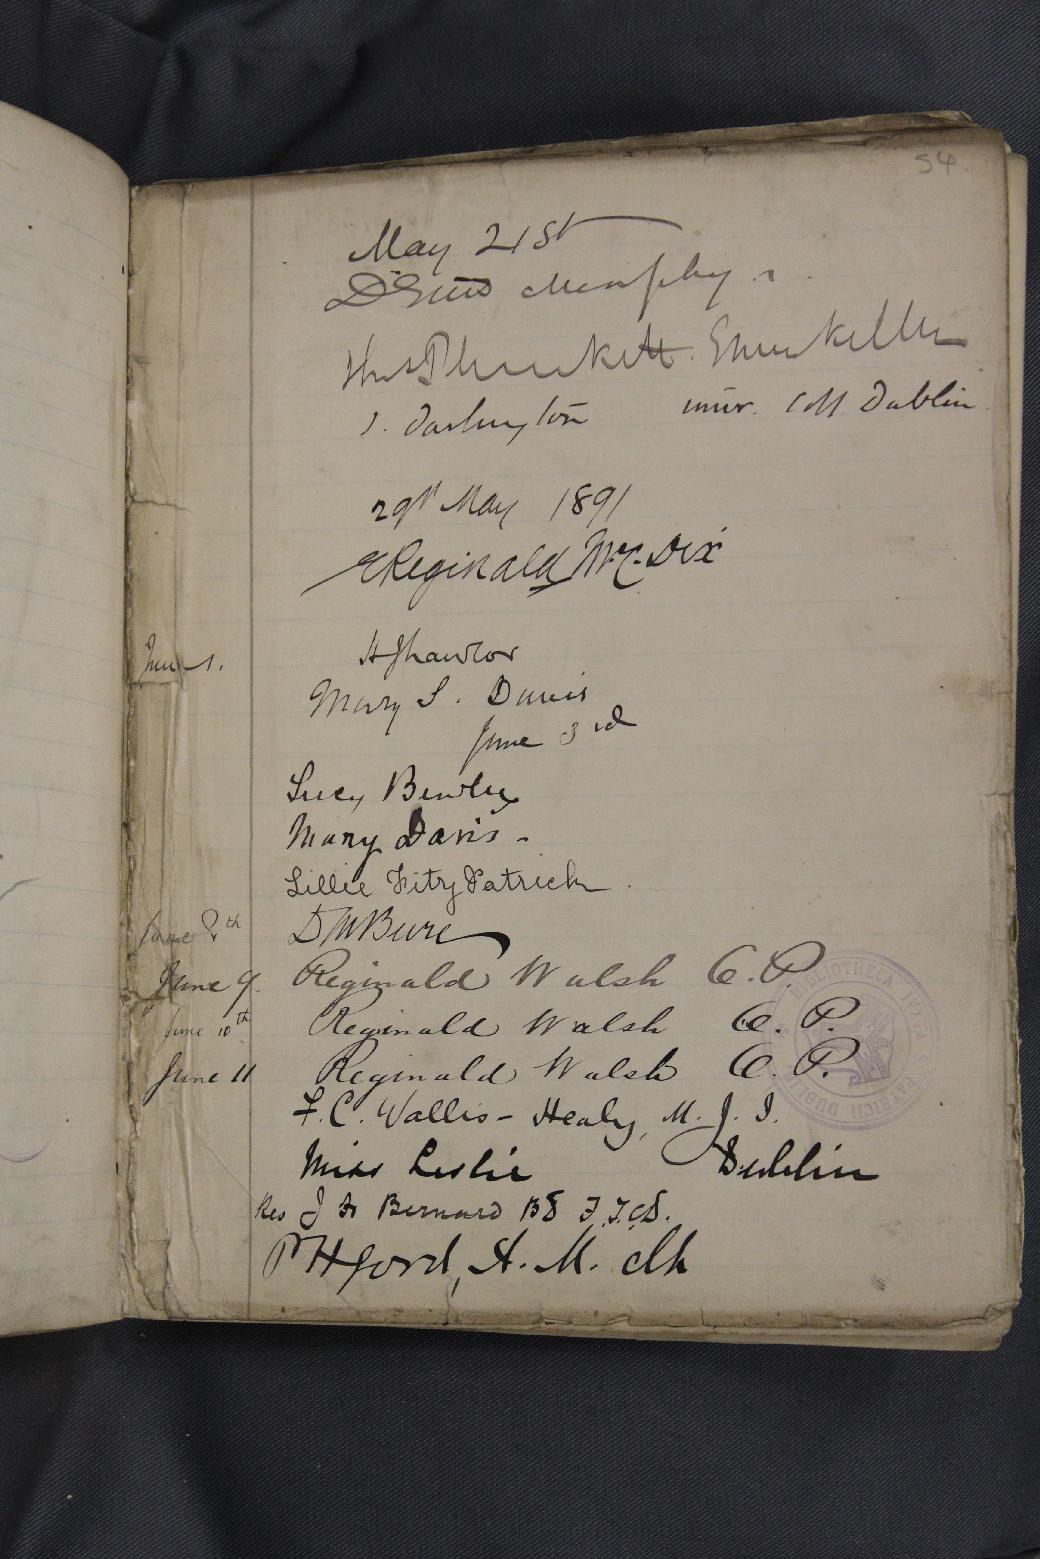 54
May 21st
Murphy
Thos Plunkett. Enniskillen
J. Darlington Univ. Coll Dublin
29th May 1891
EReginald McC. Dix
June 1.
Mary S. Davis
June 3rd
Lucy Bewley
Mary Davis -
Lillie FitzPatrick.
June 8th
June 9. Reginald Walsh C. P.
June 10th Reginald Walsh C. P.
June 11 Reginald Walsh C. P.
F. C. Wallis - Healy, M. J. I.
Miss Leslie Dublin
Rev J H Bernard BD F.T.C.D.
P H Ford, A. M.
BIBLIOTHECA IUXTA S. PATRICII DUBLIN